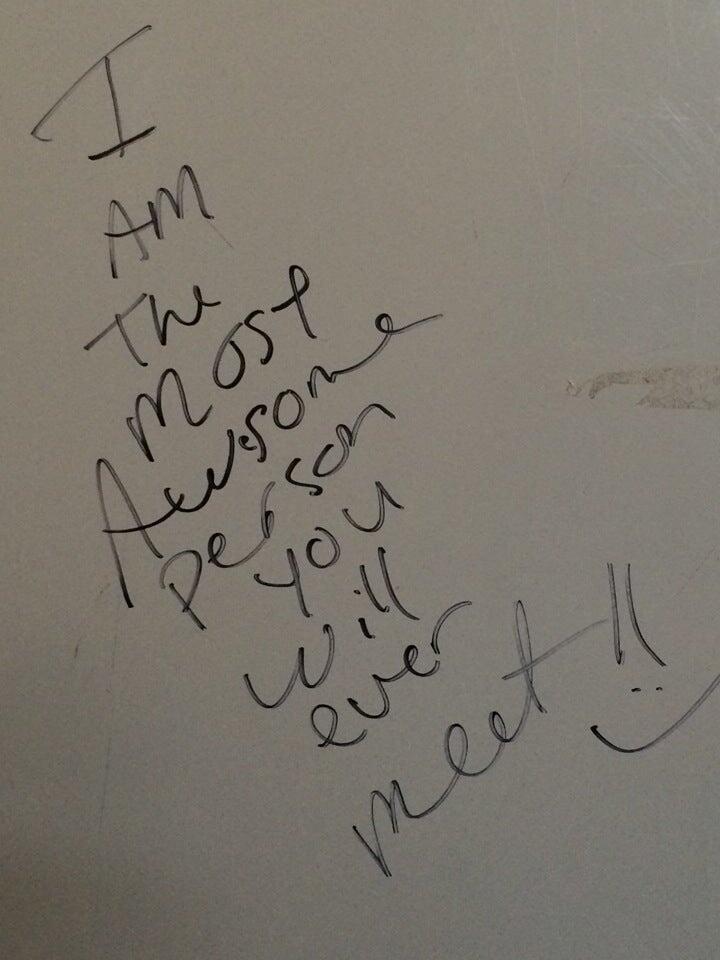 I
AM
The
Most
Awsome
person
you
will
ever
meet!!